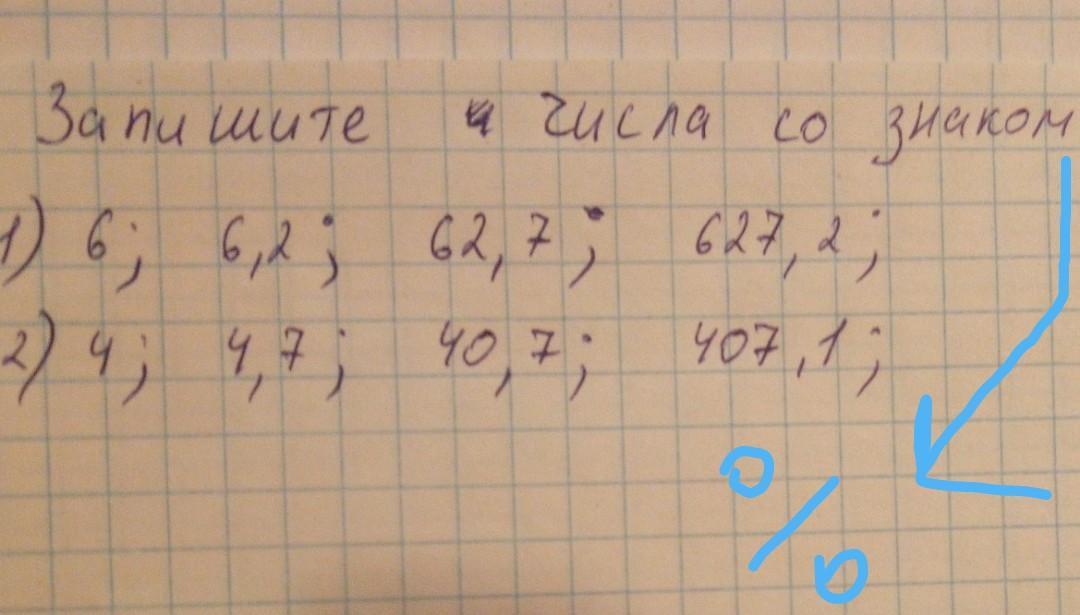 Запишите числа со знаком
1) 6; 6,2; 62,7; 627,2;
2) 4; 4,7; 40,7; 407,1;
%